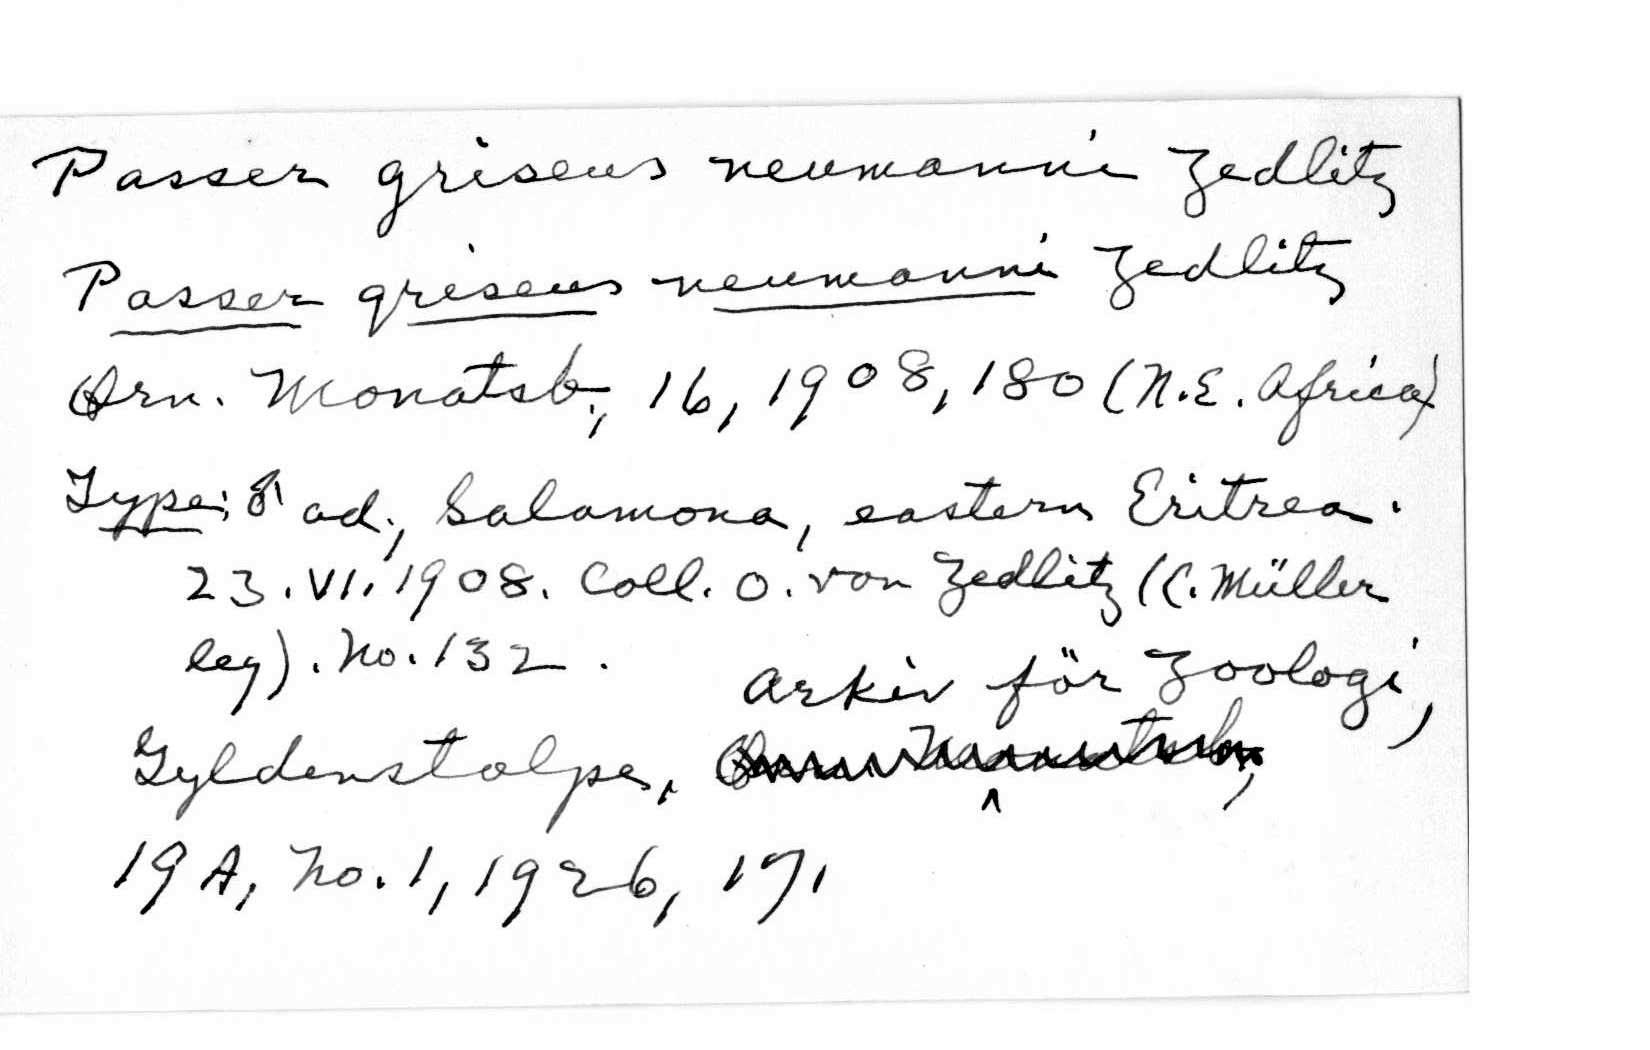 Passer griseus neumanni Zedlitz
Passer griseus neumanni Zedlitz
Orn. Monatsb., 16, 1908, 180 (N.E. Africa)
Type: ♂ ad., Salamona, eastern Eritrea.
23.VI.1908. Coll. O. von Zedlitz (C. Müller
leg). No. 132.
Arkiv för Zoologi,
Gyldenstolpe, Orn. Monatsb.,
19A, No. 1, 1926, 17.